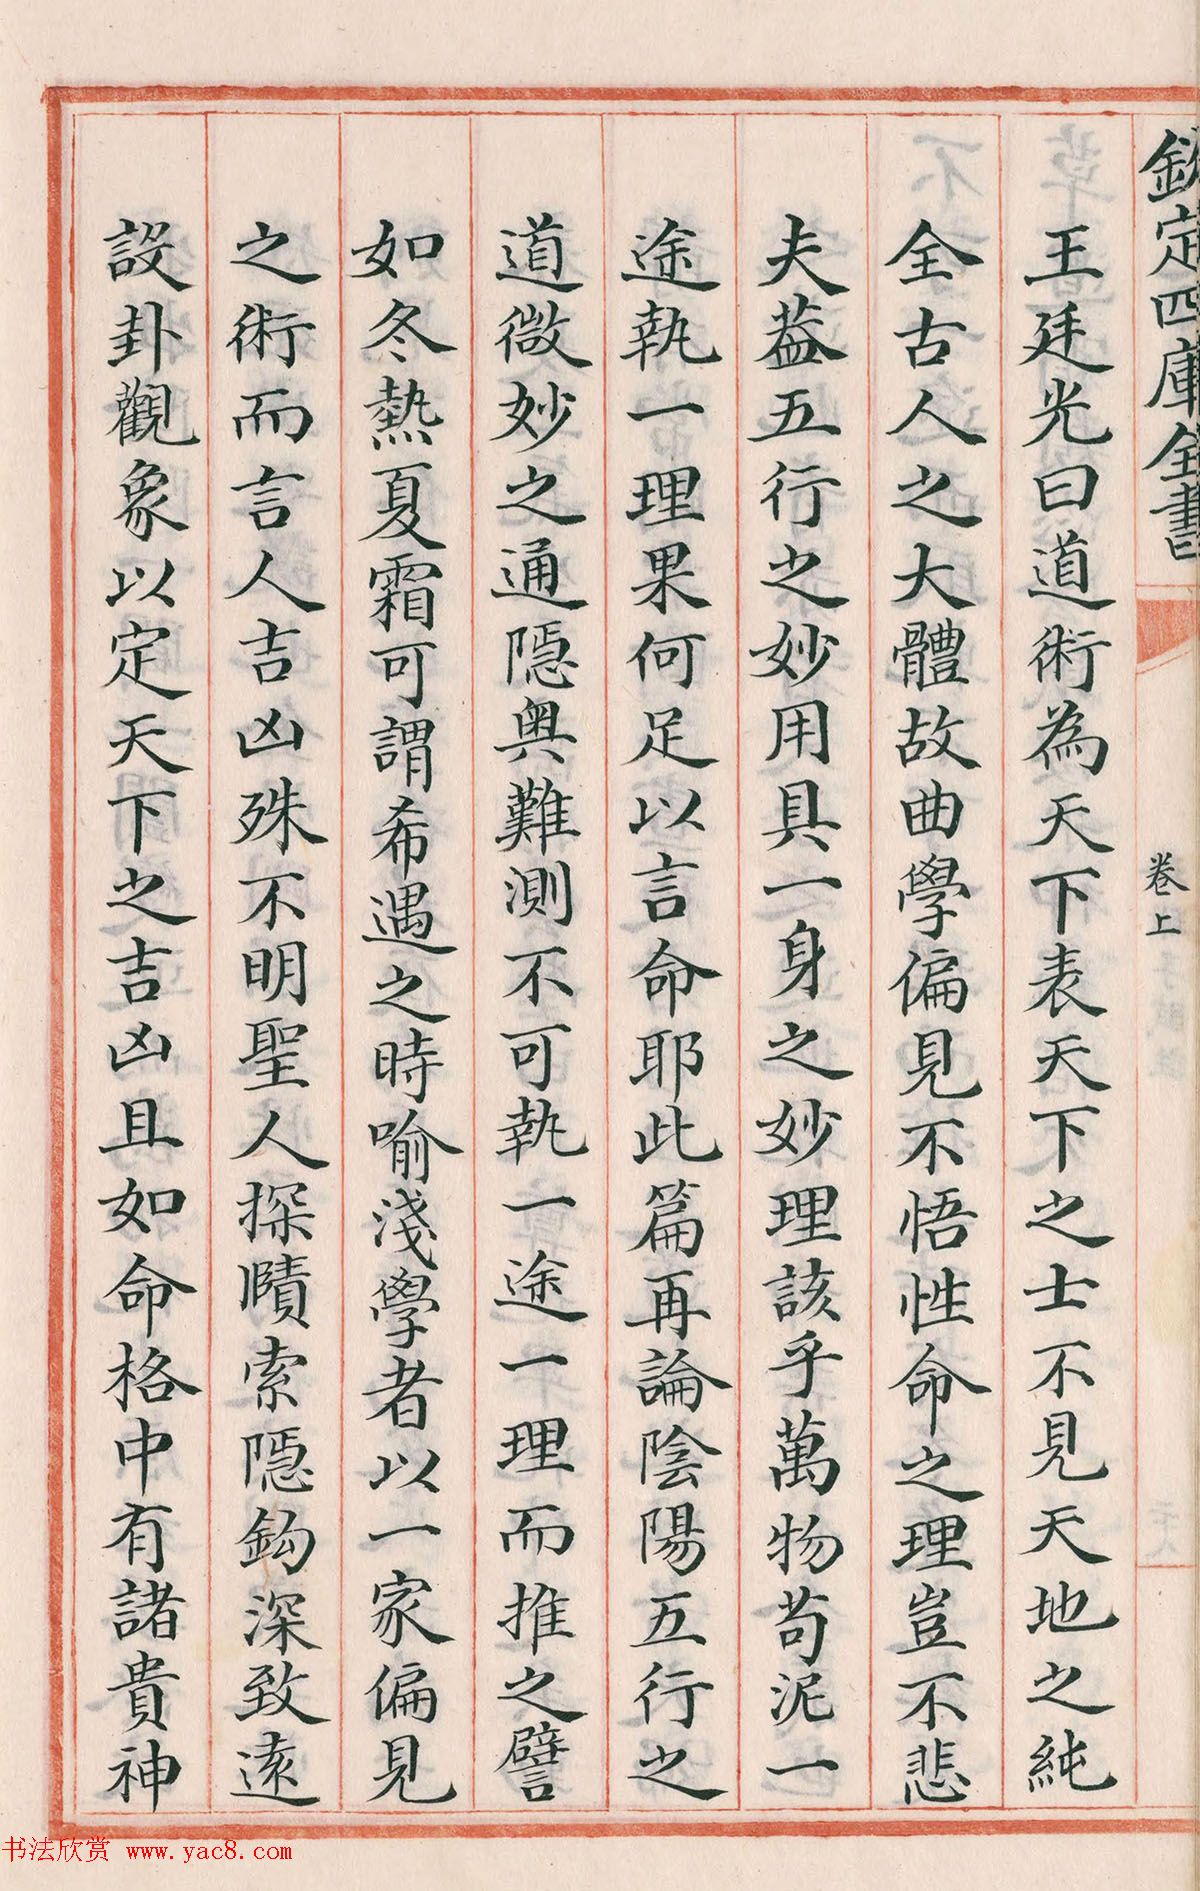 欽定四庫全書
卷上
王廷光曰道術為天下表天下之士不見天地之純
全古人之大體故曲學偏見不悟性命之理豈不悲
夫葢五行之妙用具一身之妙理該乎萬物苟泥一
途執一理果何足以言命耶此篇再論陰陽五行之
道微妙之通隱奥難測不可執一途一理而推之譬
如冬熱夏霜可謂希遇之時喻淺學者以一家偏見
之術而言人吉凶殊不明聖人探賾索隱鈎深致遠
設卦觀象以定天下之吉凶且如命格中有諸貴神
书法欣赏 www.yac8.com